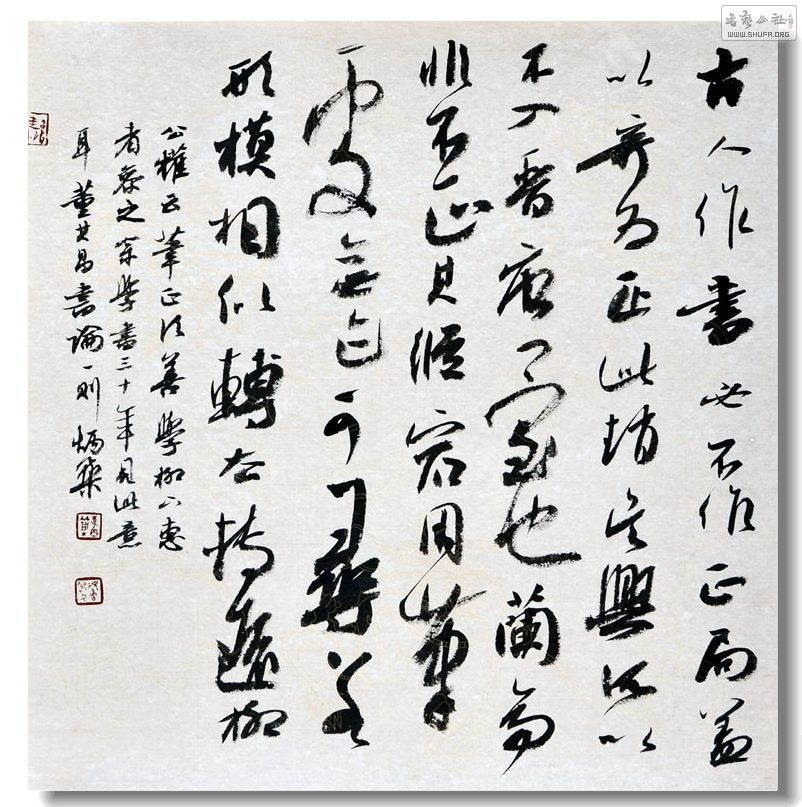 書藝公社
WWW.SHUFA.ORG
古人作書必不作正局蓋
以奇为正此趙吳興所以
不入晉唐门室也蘭亭
非不正其縱宕用筆
處無迹可尋若
形模相似轉去轉遠柳
公權云筆正須善學柳下惠
者參之余學書三十年見此意
耳董其昌書論一則炳